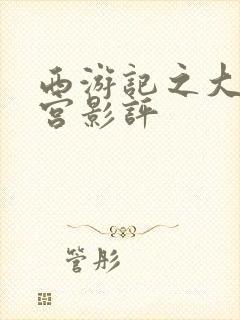 西游記之大
宮影評
管彤